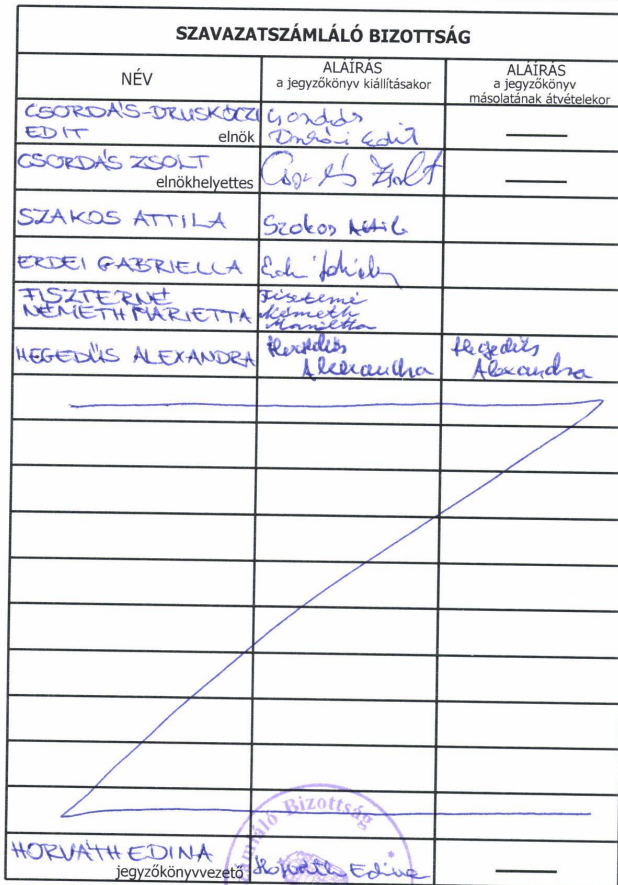 SZAVAZATSZÁMLÁLÓ BIZOTTSÁG
NÉV
ALÁÍRÁS
a jegyzőkönyv kiállításakor
ALÁÍRÁS
a jegyzőkönyv
másolatának átvételekor
CSORDÁS-DRUSKÓCZI
EDIT
elnök
Csordás
Edit
CSORDÁS ZSOLT
elnökhelyettes
Zsolt
SZAKOS ATTILA
Szakos Attila
ERDEI GABRIELLA
FISZTERNÉ
NÉMETH MARIETTA
Fiszterné
Németh
Marietta
HEGEDŰS ALEXANDRA
Hegedűs
Alexandra
Hegedűs
Alexandra
HORVÁTH EDINA
jegyzőkönyvvezető
Horváth Edina
Bizottság